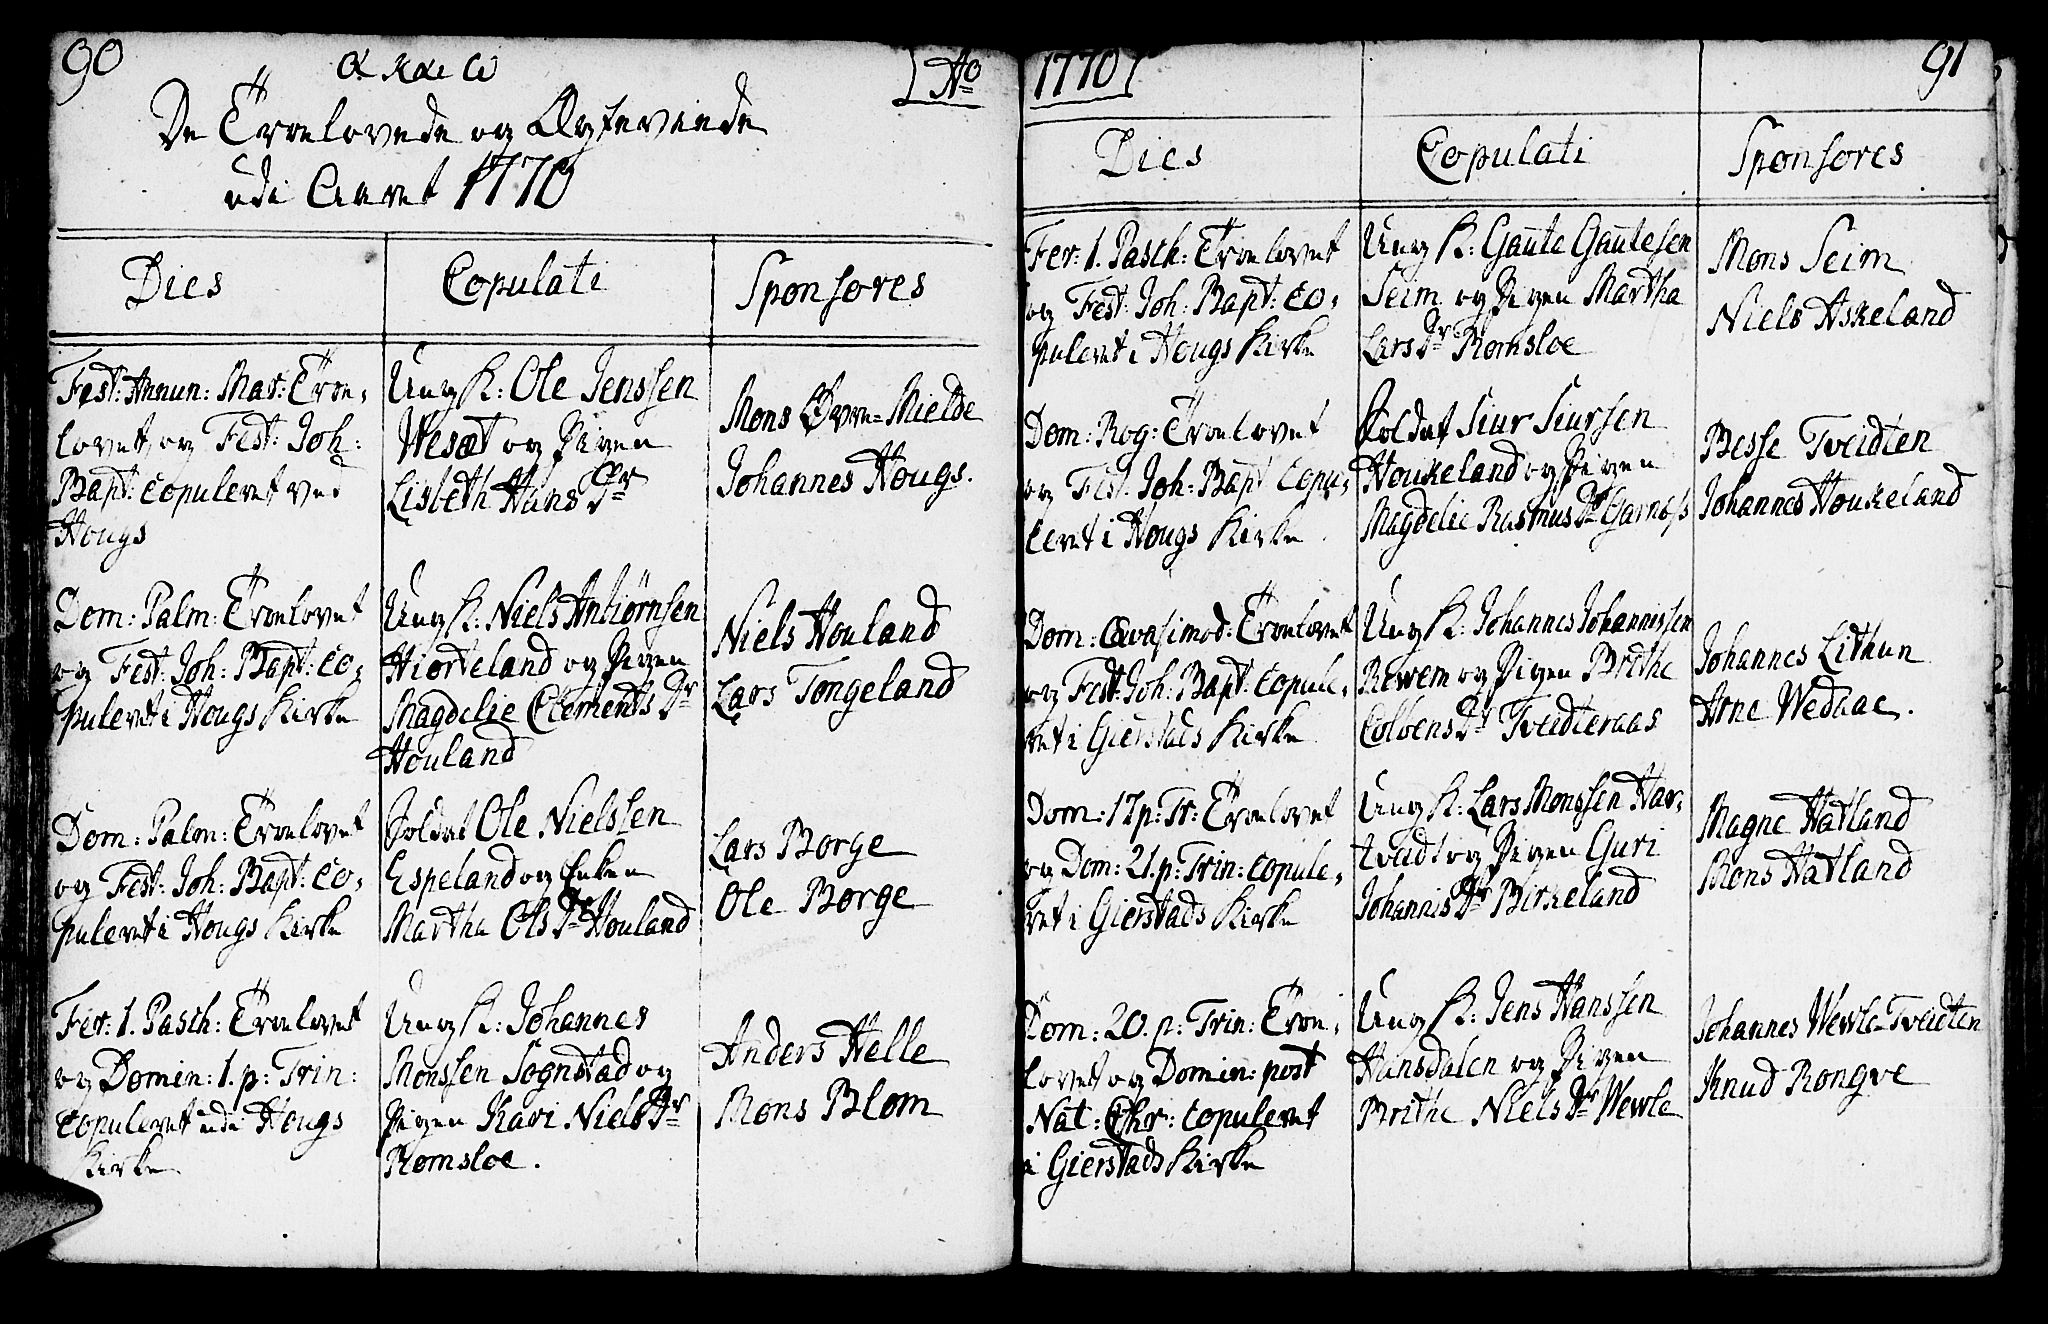 90
Ao
De Troelovede og Ægteviede
udi Aaret 1770
Dies
Copulati
Sponsores
Fest: Annun: Mar: Troe-
lovet, og Fest: Joh:
Bapt: copuleret ved
Hougs
Ung K: Ole Jenssen
Wesæt og Pigen
Lisbeth Hans Dr
Mons Øvre-Mielde
Johannes Hougs.
Dom: Palm: Troelovet
og Fest: Joh: Bapt: co-
puleret i Hougs Kirke
Ung K: Niels Anbiørnsen
Hiorteland og Pigen
Magdelie Clements Dr
Houland
Niels Houland
Lars Tongeland
Dom: Palm: Troelovet
og Fest: Joh: Bapt: co-
puleret i Hougs Kirke
Soldat Ole Nielssen
Espeland og Enken
Martha Ols Dr Houland
Lars Borge
Ole Borge
Fer: 1. Pasch: Troelovet
og Domin: 1. p: Trin:
copuleret udi Hougs
Kirke
Ung K: Johannes
Monssen Sognstad og
Pigen Kari Niels Dr
Romsloe.
Anders Helle
Mons Blom
1770
91
Dies
Copulati
Sponsores
Fer: 1. Pasch: Troelovet
og Fest: Joh: Bapt: co-
puleret i Hougs Kirke
Ung K: Gaute Gautesen
Seim og Pigen Martha
Lars Dr Romsloe
Mons Seim
Niels Askeland
Dom: Rog: Troelovet
og Fest: Joh: Bapt copu-
leret i Hougs Kirke
Soldat Siur Siursen
Houkeland og Pigen
Magdelie Rasmus Dr Garnæss
Besse Tveidten
Johannes Houkeland
Dom: Qvasimod: Troelovet
og Fest: Joh: Bapt: copule-
ret i Gierstads Kirke
Ung K: Johannes Johannessen
Rewem og Pigen Brithe
Colbens Dr Tveidteraas
Johannes Lithun
Arne Wedaae.
Dom: 17 p: Tr: Troelovet
og Dom: 21. p: Trin: copule-
ret i Gierstads Kirke
Ung K: Lars Monssen Har-
tveidt og Pigen Guri
Johannis Dr Birkeland
Magne Hatland
Mons Hatland
Dom: 20. p: Trin: Troe-
lovet og Domin: post
Nat: Chr: copuleret
i Gierstads Kirke
Ung K: Jens Hanssen
Hansdalen og Pigen
Brithe Niels Dr Wewle
Johannes Wewle-Tveidten
Knud Rongve